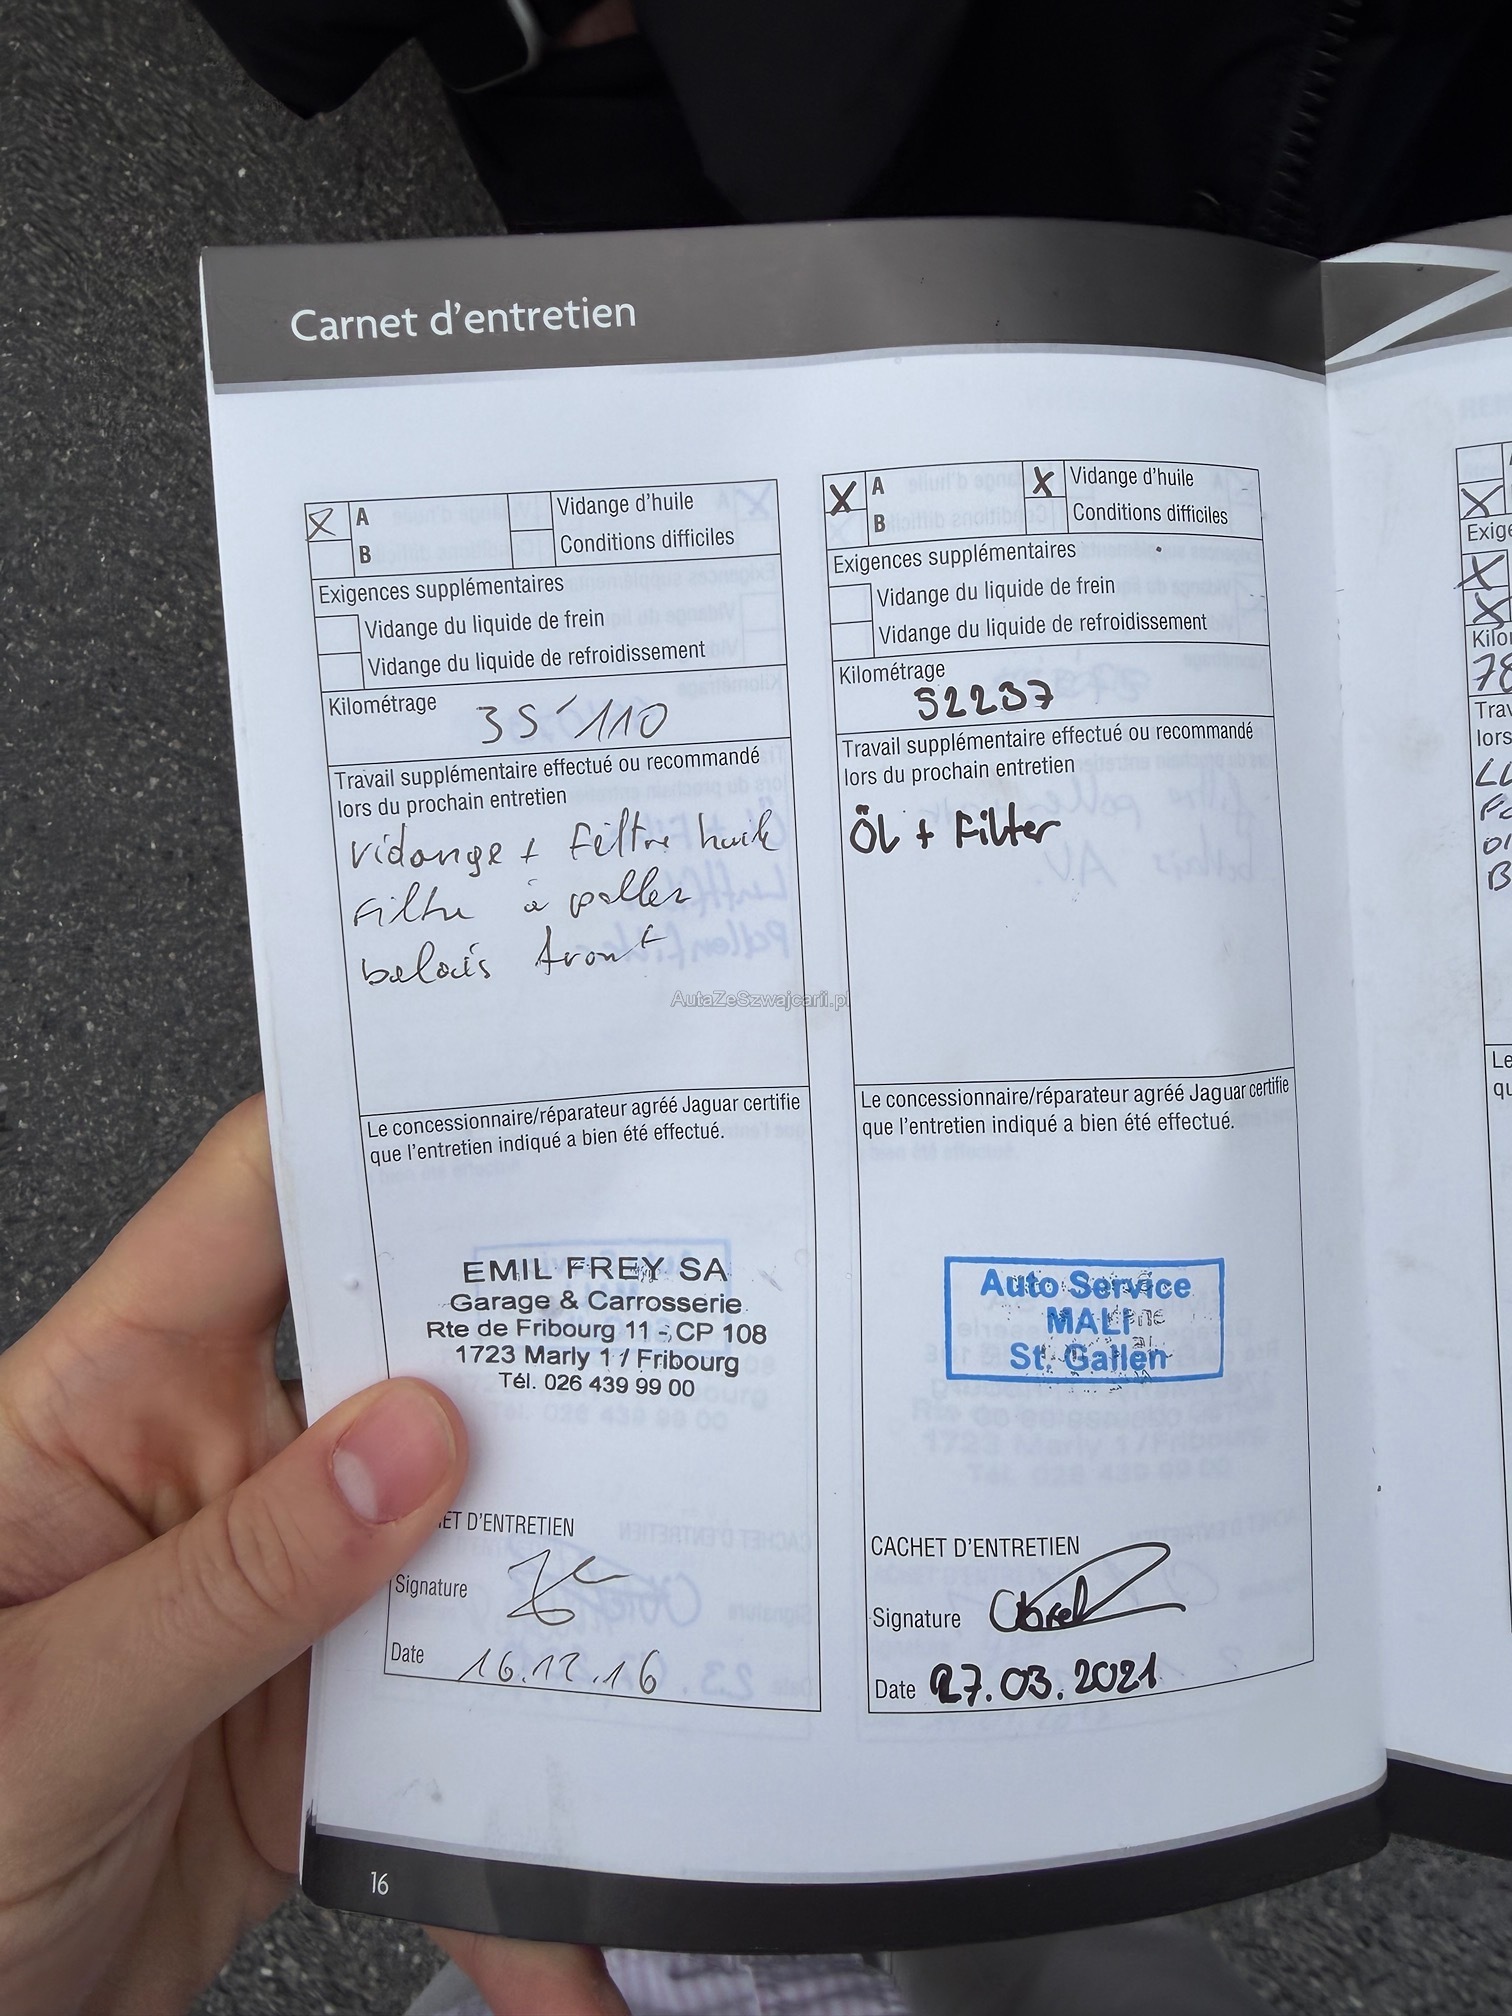 Carnet d'entretien
X A
B
Vidange d'huile
Conditions difficiles
Exigences supplémentaires
Vidange du liquide de frein
Vidange du liquide de refroidissement
Kilométrage
35'110
Travail supplémentaire effectué ou recommandé
lors du prochain entretien
Vidange + Filtre huile
Filtre à pollen
balais Avant
Le concessionnaire/réparateur agréé Jaguar certifie
que l'entretien indiqué a bien été effectué.
EMIL FREY SA
Garage & Carrosserie
Rte de Fribourg 11 - CP 108
1723 Marly 1 / Fribourg
Tél. 026 439 99 00
ET D'ENTRETIEN
Signature
Date 16.12.16
X A
B
X Vidange d'huile
Conditions difficiles
Exigences supplémentaires
Vidange du liquide de frein
Vidange du liquide de refroidissement
Kilométrage
52237
Travail supplémentaire effectué ou recommandé
lors du prochain entretien
ÖL + Filter
Le concessionnaire/réparateur agréé Jaguar certifie
que l'entretien indiqué a bien été effectué.
Auto Service
MALI
St. Gallen
CACHET D'ENTRETIEN
Signature
Date 27.03.2021
16
X
Exige
X
X
Kilo
78
Trav
lors
Le
qu
AutaZeSzwajcarii.pl